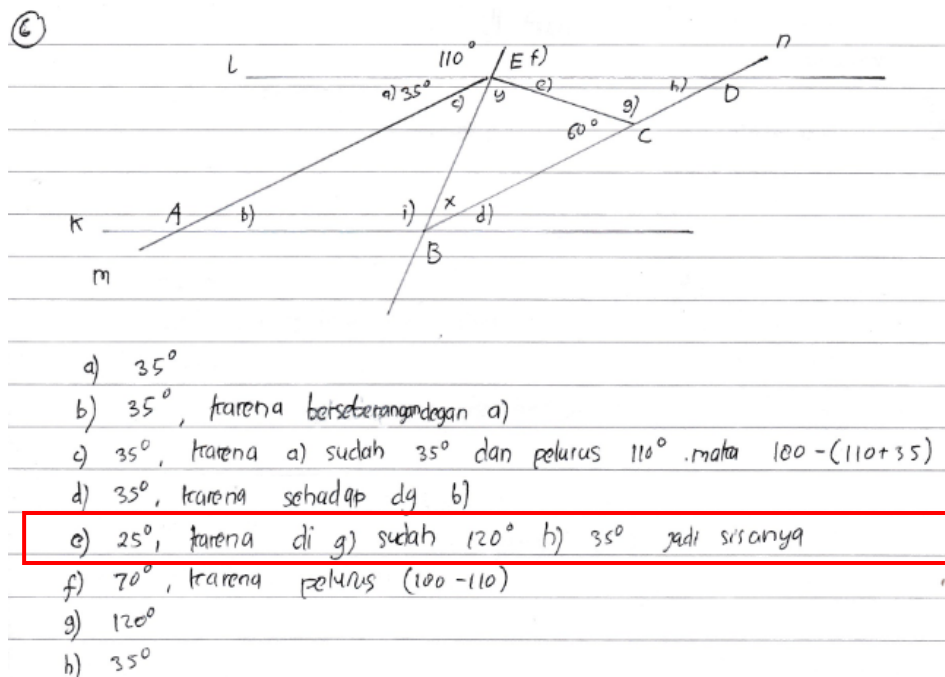 6
L 110° E f) n
a) 35° c) y e) h) D
60° g) C
K A b) i) x d)
m B
a) 35°
b) 35°, karena berseberangandegan a)
c) 35°, karena a) sudah 35° dan pelurus 110° .maka 180-(110+35)
d) 35°, karena sehadap dg b)
e) 25°, karena di g) sudah 120° h) 35° jadi sisanya
f) 70°, karena pelurus (180-110)
g) 120°
h) 35°